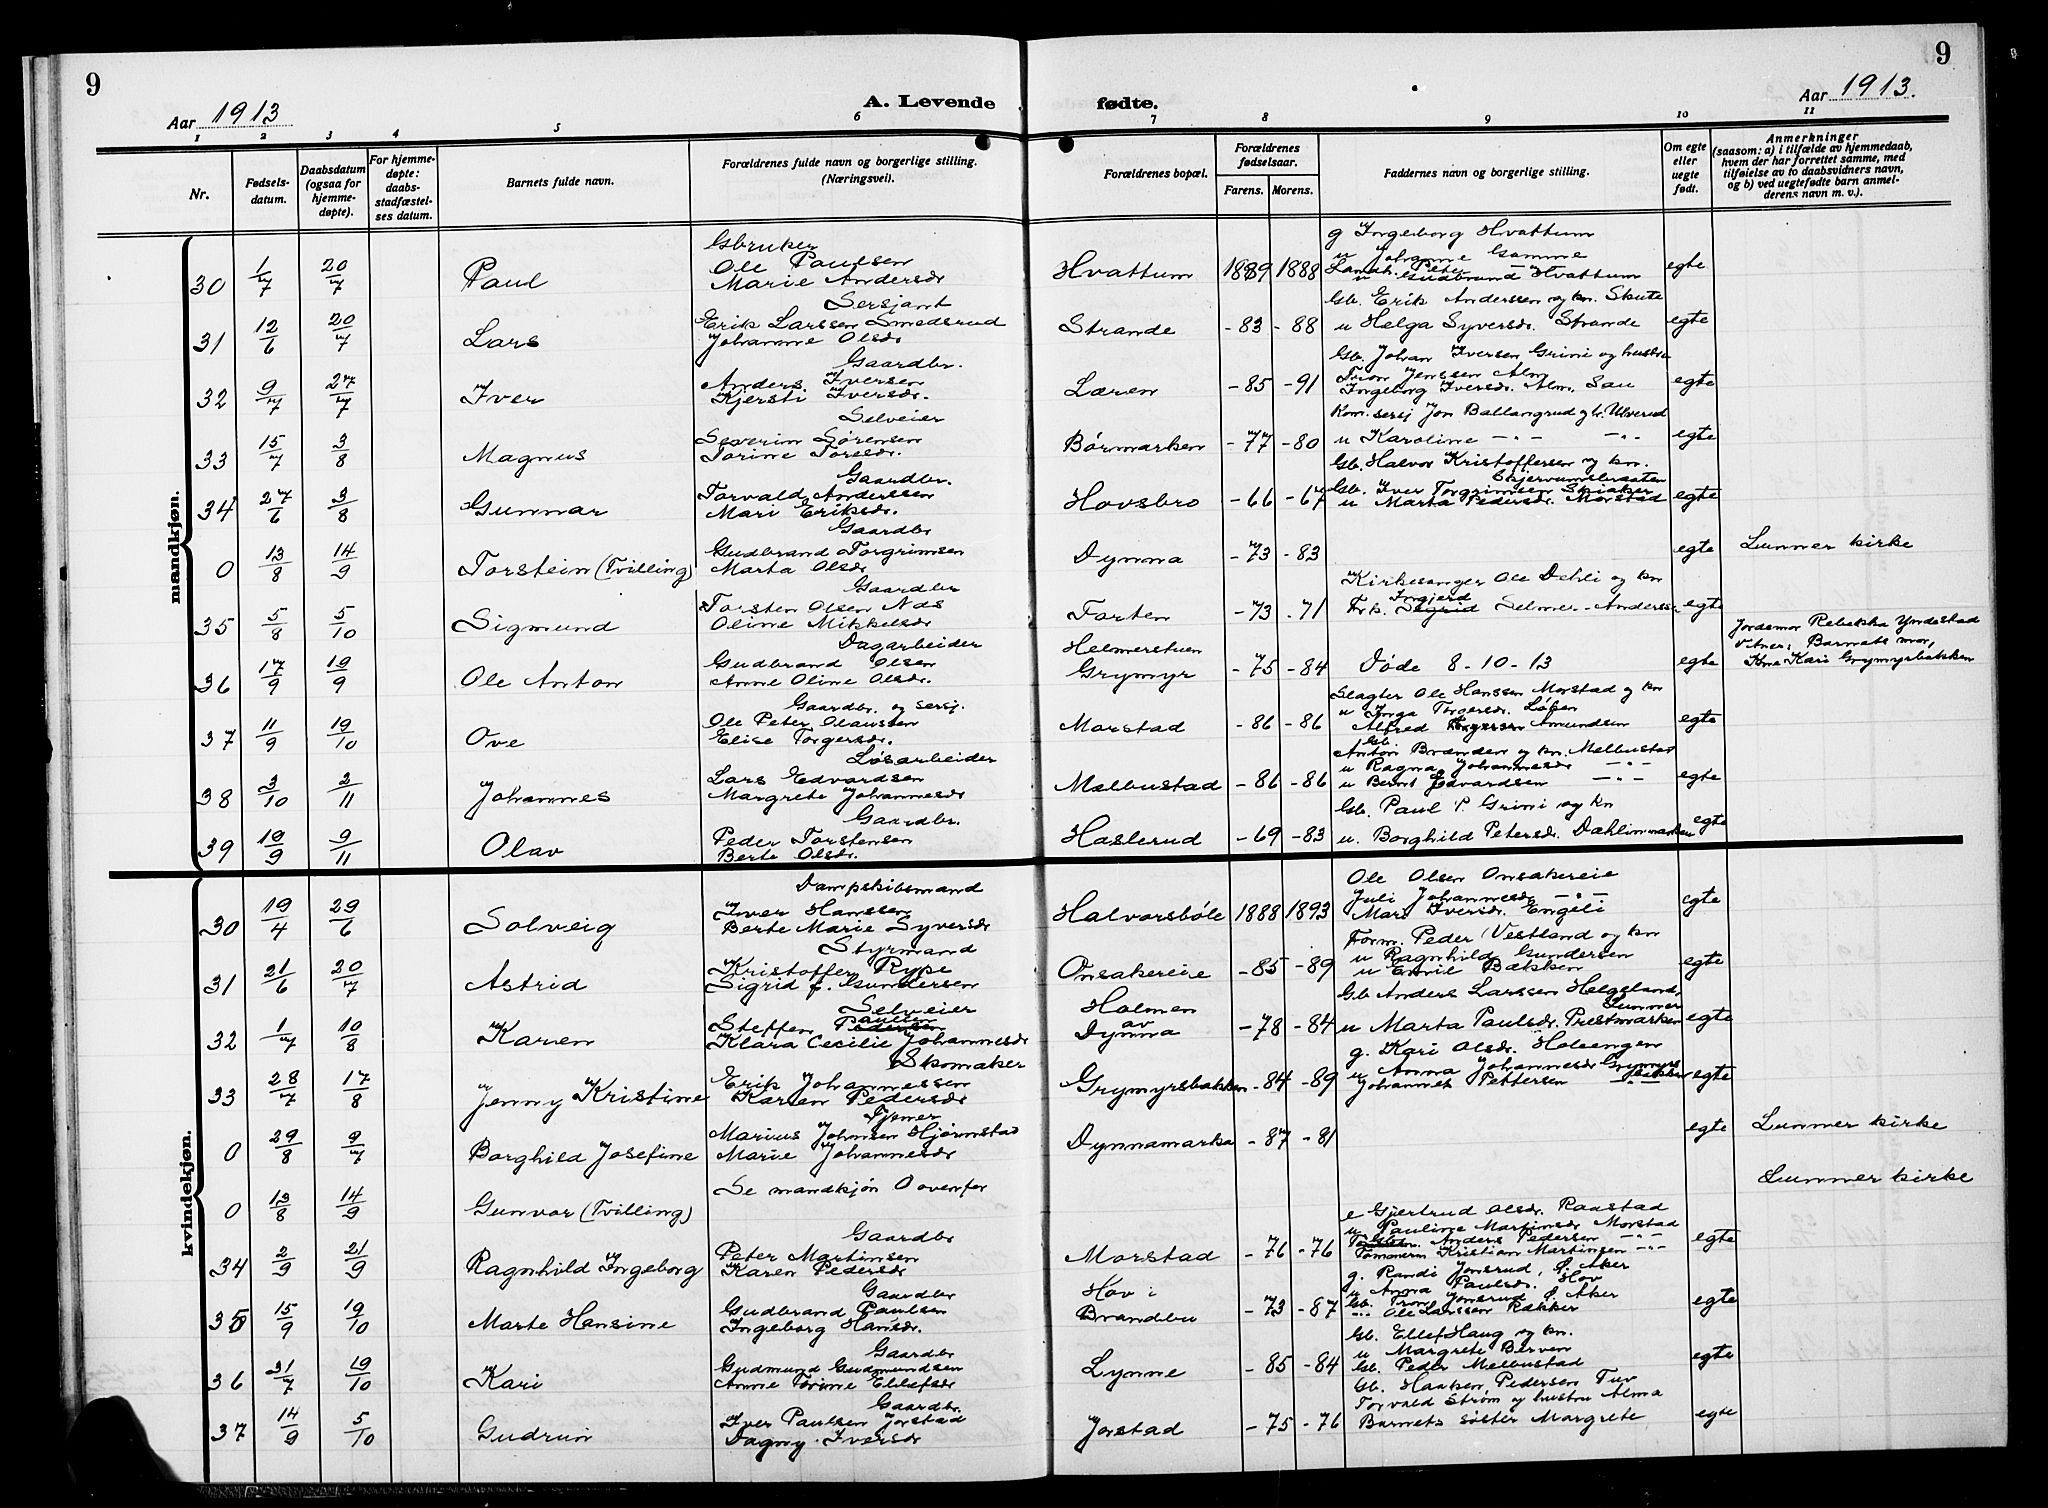 9
9
Aar 1913
A. Levende fødte.
Aar 1913.
1 2 3 4 5 6 7 8 9 10 11
Nr.
Fødsels-
datum.
Daabsdatum
(ogsaa for
hjemme-
døpte).
For hjemme-
døpte:
daabs-
stadfæstel-
ses datum.
Barnets fulde navn.
Forældrenes fulde navn og borgerlige stilling.
(Næringsvei).
Forældrenes bopæl.
Forældrenes
fødselsaar.
Farens. Morens.
Faddernes navn og borgerlige stilling.
Om egte
eller
uegte
født.
Anmerkninger
(saasom: a) i tilfælde av hjemmedaab,
hvem der har forrettet samme, med
tilføielse av to daabsvidners navn,
og b) ved uegtefødte barn anmel-
derens navn m. v.).
mandkjøn.
30 1/7 20/7 Paul
Gbruker
Ole Paulsen
Marie Andersdr
Hvattum 1889 1888
g Ingeborg Hvattum
u Johanne Gamme
Landh. Peter —"—
u Gudbrand Hvattum
egte
31 12/6 20/7 Lars
Sersjant
Erik Larssen Smedsrud
Johanne Olsdr
Strande - 83 - 88
Gb. Erik Anderssen og kn. Skute
u Helga Syversdr. Strande
egte
32 9/7 27/7 Iver
Gaardbr.
Anders Iversen
Kjersti Iversdr.
Læren - 85 - 91
Gb. Johan Iversen Grini og hustru
Tron Jenssen Alm
Ingeborg Iversdr. Alm. San
egte
33 15/7 3/8 Magnus
Selveier
Severin Sørensen
Torine Toresdr.
Børmarken - 77 - 80
Kom. sersj Jon Ballangrud gbr. Ulverud
u Karoline —"— —"—
egte
34 27/6 3/8 Gunnar
Gaardbr.
Torvald Anderssen
Mari Eriksdr.
Hovsbro - 66 - 67
Gb. Halvor Kristoffersen og kn.
Skjervumsbraaten
Gb. Iver Torgrimsen Skiaker
u Marta Pedersdr. Morstad
egte
0 13/8 14/9 Torstein (Tvilling)
Gaardbr
Gudbrand Torgrimsen
Marta Olsdr
Dynna - 73 - 83
egte Lunner kirke
35 5/8 5/10 Sigmund
Gaardbr
Torsten Olsen Næs
Oline Mikkelsdr
Forten - 73 - 71
Kirkesanger Ole Dahli og kn
Ingjerd
Frk. Sigrid Selmer-Anderss.
egte
36 17/9 19/9 Ole Anton
Dagarbeider
Gudbrand Olsen
Anne Oline Olsdr.
Helmerstuen
Grymyr - 75 - 84
Døde 8-10-13
egte
Jordemor Rebekka Yndestad
Vitner: Barnets mor,
Kne Kari Grymyrbakken
37 11/9 19/10 Ove
Gaardbr. og sersj.
Ole Peter Olaussen
Elise Torgersdr.
Morstad - 86 - 86
Slagter Ole Hanssen Morstad og kn
u Inga Torgersdr. Løken
Alfred Torgersen Amundsen
egte
38 3/10 2/11 Johannes
Løsarbeider
Lars Edvardsen
Margrete Johannesdr
Melbustad - 86 - 86
Gb.
Anton Brænden og kn. Melbustad
u Ragna Johannesdr —"—
u Bernt Edvardsen —"—
egte
39 19/9 9/11 Olav
Gaardbr.
Peder Torstensen
Berte Olsdr.
Haslerud - 69 - 83
Gb. Paul P. Grini og kn
u. Borghild Petersdr. Dæhlinmarken
egte
kvindekjøn.
30 19/4 29/6 Solveig
Dampskibsmand
Iver Hanssen
Berte Marie Syversdr
Halvorsbøle 1888 1893
Ole Olsen Onsakereie
Juli Johannesdr —"—
Mari Iversdr. Engeli
egte
31 21/6 20/7 Astrid
Styrmand
Kristoffer Rype
Sigrid f. Gundersen
Onsakereie - 85 - 89
Form. Peder Vestland og kn
u Ragnhild Gundersen
u Emil Bækken
egte
32 1/7 10/8 Karen
Selveier
Paulsen
Steffen Pedersen
Klara Cecilie Johannesdr
Holmen
av
Dynna - 78 - 84
Gb Anders Larssen Helgeland,
Lunner
u Marta Paulsdr. Prestmarken
egte
33 28/7 17/8 Jenny Kristine
Skomaker
Erik Johannessen
Karen Pedersdr
Grymyrsbakken - 84 - 89
g. Kari Olsdr. Holsengen
u Anna Johannesdr Grymyrs
bakken
Johannes Pettersen —"—
egte
0 29/8 9/7 Borghild Josefine
Tjener
Marius Johnsen Hjørnstad
Marie Johannesdr
Dynnamarka - 87 - 81
egte Lunner kirke
0 13/8 14/9 Gunvor (Tvilling)
Se mandkjøn 0 ovenfor
Lunner kirke
34 2/9 21/9 Ragnhild Ingeborg
Gaardbr
Peter Martinsen
Karen Pedersdr
Morstad - 76 - 76
e Gjertrud Olsdr. Raastad
u Pauline Martinsdr Morstad
Anders Pedersen —"—
Tømmerm Kristian Martinsen —"—
egte
35 15/9 19/10 Marte Hansine
Gaardbr
Gudbrand Paulsen
Ingeborg Hansdr.
Hov i
Brandbu - 73 - 87
g. Randi Jonsrud, ø. Aker
u Anna Paulsdr. Hov
Gb. Tron Jonsrud ø. Aker
—"— Ole Larssen Rækker
egte
36 31/7 19/10 Kari
Gaardbr
Gudmund Gudmundsen
Anne Torine Ellefsdr
Lynne - 85 - 84
Gb. Ellef Haug og kn.
u Margrete Berven
Gb. Peder Melbustad
egte
37 14/9 5/10 Gudrun
Gaardbr.
Iver Paulsen Jorstad
Dagny Iversdr
Jorstad - 75 - 76
Gb. Haaken Pedersen Tuv
Torvald Strøm og hustru Alma
Barnets søster Margrete
egte